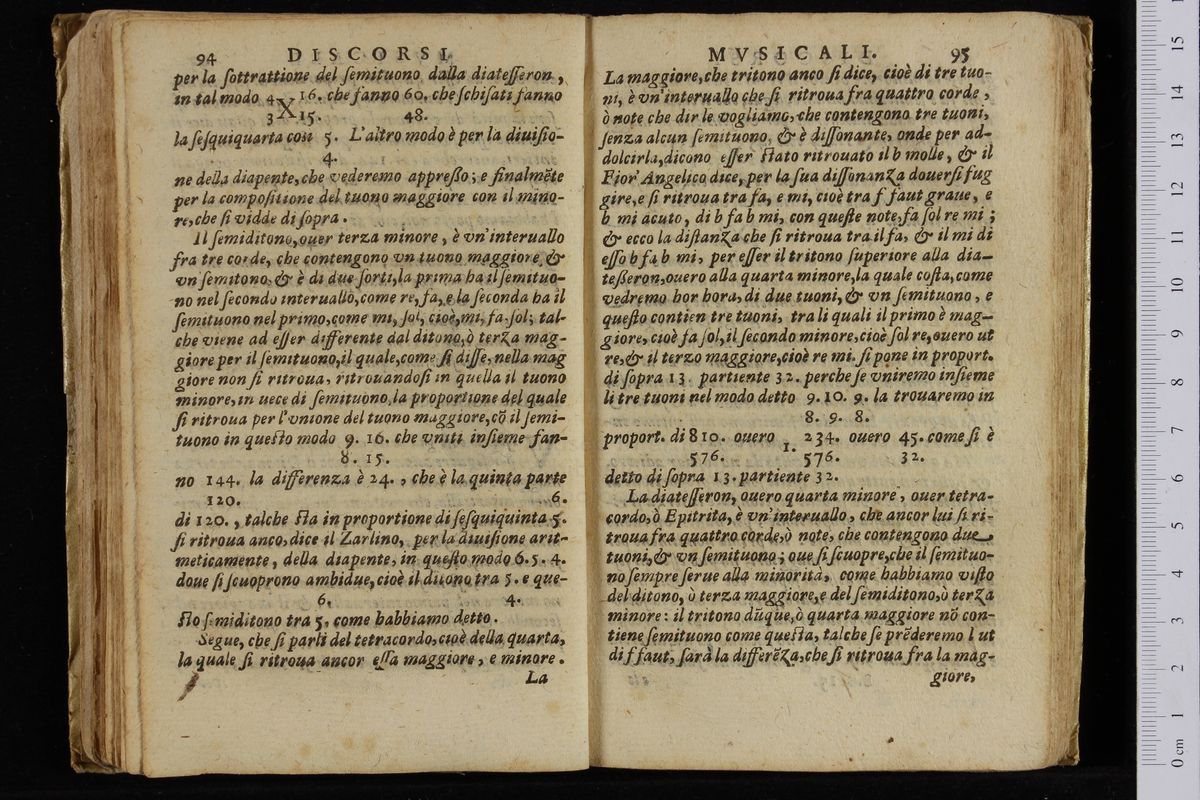 94 DISCORSI
per la ſottrattione del ſemituono dalla diateſſeron,
in tal modo 4 X 16. che fanno 60. che ſchiſati fanno
3 15. 48.
la ſeſquiquarta così 5. L'altro modo è per la diuiſio-
4.
ne della diapente, che vederemo appreßo; e finalmẽte
per la compoſitione del tuono maggiore con il mino-
re, che ſi vidde di ſopra.
Il ſemiditono, ouer terza minore, è vn'interuallo
fra tre corde, che contengono vn tuono maggiore, &
vn ſemitono, & è di due ſorti, la prima ha il ſemituo-
no nel ſecondo interuallo, come re, fa, e la ſeconda ha il
ſemituono nel primo, come mi, ſol, cioè, mi, fa, ſol; tal-
che viene ad eſſer differente dal ditono, ò terza mag-
giore per il ſemituono, il quale, come ſi diſſe, nella mag
giore non ſi ritroua, ritrouandoſi in quella il tuono
minore, in uece di ſemituono, la proportione del quale
ſi ritroua per l'vnione del tuono maggiore, cõ il ſemi-
tuono in queſto modo 9. 16. che vniti inſieme fan-
8. 15.
no 144. la differenza è 24., che è la quinta parte
120. 6.
di 120., talche ſta in proportione di ſeſquiquinta 5.
ſi ritroua anco, dice il Zarlino, per la diuiſione arit-
meticamente, della diapente, in queſto modo 6. 5. 4.
doue ſi ſcuoprono ambidue, cioè il ditono tra 5. e que-
6. 4.
ſto ſemiditono tra 5, come habbiamo detto.
Segue, che ſi parli del tetracordo, cioè della quarta,
la quale ſi ritroua ancor eſſa maggiore, e minore.
La
MVSICALI. 95
La maggiore, che tritono anco ſi dice, cioè di tre tuo-
ni, è vn'interuallo che ſi ritroua fra quattro corde,
ò note che dir le vogliamo, che contengono tre tuoni,
ſenza alcun ſemituono, & è diſſonante, onde per ad-
dolcirla, dicono eſſer ſtato ritrouato il b molle, & il
Fior' Angelico dice, per la ſua diſſonanza douerſi fug
gire, e ſi ritroua tra fa, e mi, cioè tra f faut graue, e
b mi acuto, di b fa b mi, con queſte note, fa ſol re mi;
& ecco la diſtanza che ſi ritroua tra il fa, & il mi di
eſſo b fa b mi, per eſſer il tritono ſuperiore alla dia-
teßeron, ouero alla quarta minore, la quale coſta, come
vedremo hor hora, di due tuoni, & vn ſemituono, e
queſto contien tre tuoni, tra li quali il primo è mag-
giore, cioè fa ſol, il ſecondo minore, cioè ſol re, ouero ut
re, & il terzo maggiore, cioè re mi. ſi pone in proport.
di ſopra 13. partiente 32. perche ſe vniremo inſieme
li tre tuoni nel modo detto 9. 10. 9. la trouaremo in
8. 9. 8.
proport. di 810. ouero 1. 234. ouero 45. come ſi è
576. 576. 32.
detto di ſopra 13. partiente 32.
La diateſſeron, ouero quarta minore, ouer tetra-
cordo, ò Epitrita, è vn'interuallo, che ancor lui ſi ri-
troua fra quattro corde, ò note, che contengono due
tuoni, & vn ſemituono; oue ſi ſcuopre, che il ſemituo-
no ſempre ſerue alla minorità, come habbiamo viſto
del ditono, ò terza maggiore, e del ſemiditono, ò terza
minore: il tritono dũque, ò quarta maggiore nõ con-
tiene ſemituono come queſta, talche ſe prẽderemo l ut
di f faut, ſarà la differẽza, che ſi ritroua fra la mag-
giore,
0 cm 1 2 3 4 5 6 7 8 9 10 11 12 13 14 15